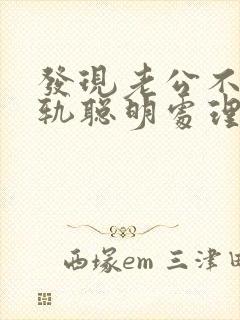 發現老公不
軌聰明處理
西塚em 三津田